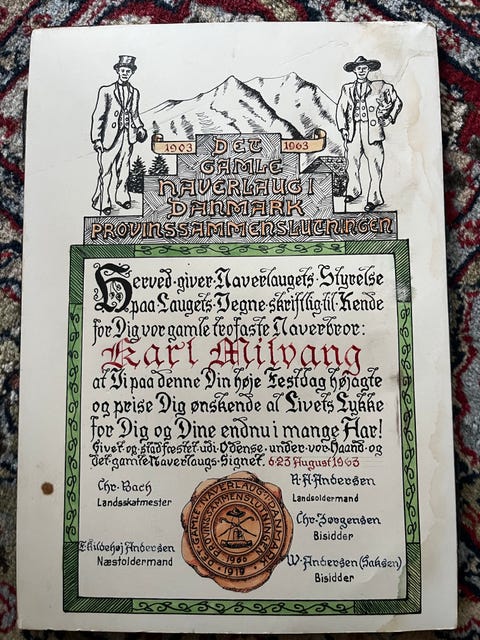 1903 1963
DET
GAMLE
NAVERLAUG I
DANMARK
PROVINSSAMMENSLUTNINGEN
Herved giver Naverlaugets Styrelse
paa Laugets Vegne skriftlig til Kende
for Dig vor gamle trofaste Naverbror:
Karl Milvang
at Vi paa denne Din høje Festdag højagte
og prise Dig ønskende at Livets Lykke
for Dig og Dine endnu i mange Aar!
Givet og stadfæstet udi Odense under vor Haand og
det gamle Naverlaugs Signet. d.23 August 1963
Chr. Bach
Landsskatmester
Andersen
Landsoldermand
Chr. Jørgensen
Bisidder
Andersen
Næstoldermand
W. Andersen (Saksen)
Bisidder
DET GAMLE NAVERLAUG I DANMARK
PROVINSSAMMENSLUTNINGEN
1919